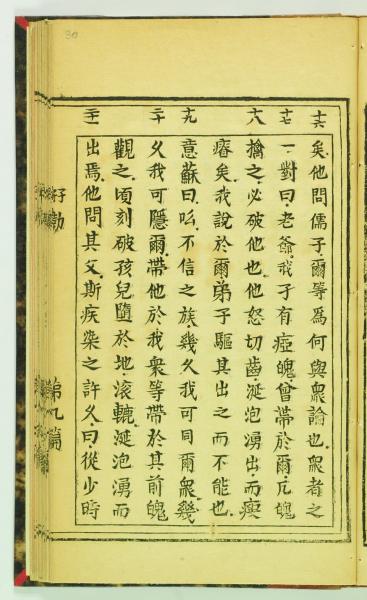 30
十六
矣他問儒子爾等為何與衆論也衆者之
十七
一對曰老爺我子有瘂魄曾帶於爾凢魄
十八
擒之必破他也他怒切齒涎泡湧出而瘐
瘠矣我說於爾弟子驅其出之而不能也
十九
意蘇曰吆不信之族幾久我可同爾衆幾
二十
久我可隱爾帶他於我衆等帶於其前魄
觀之頃刻破孩兒墮於地滚轆涎泡湧而
二十一
出焉他問其父斯疾染之許久曰從少時
第九篇